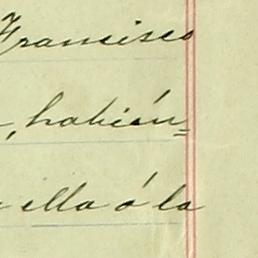 Francisco
, habién=
ella ó la